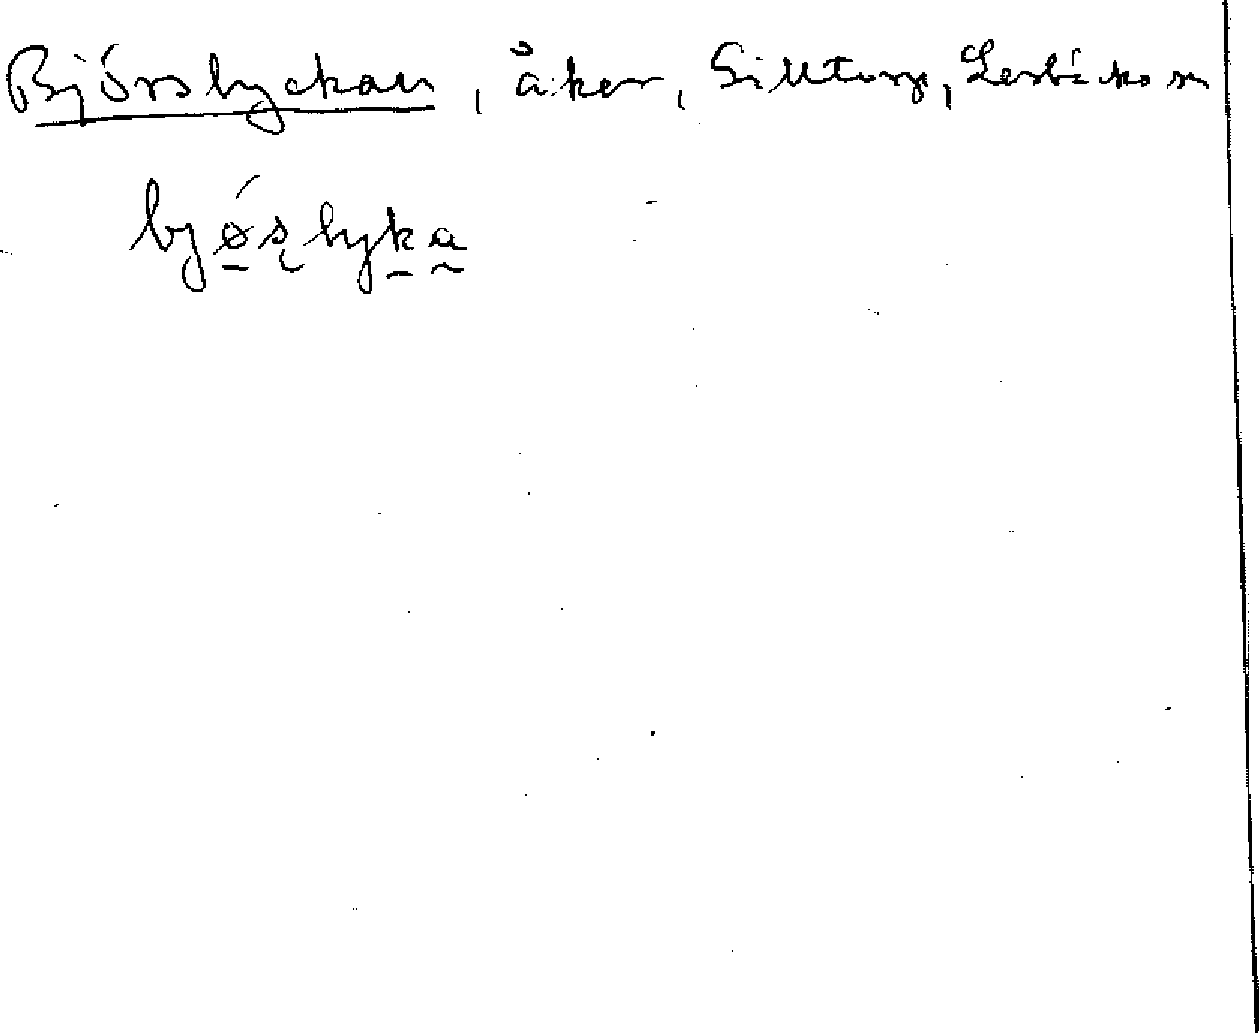 Björslyckan, åker, Silltorp, Lerbäcks sn
bjǿ̠s̨lyk̠a̰